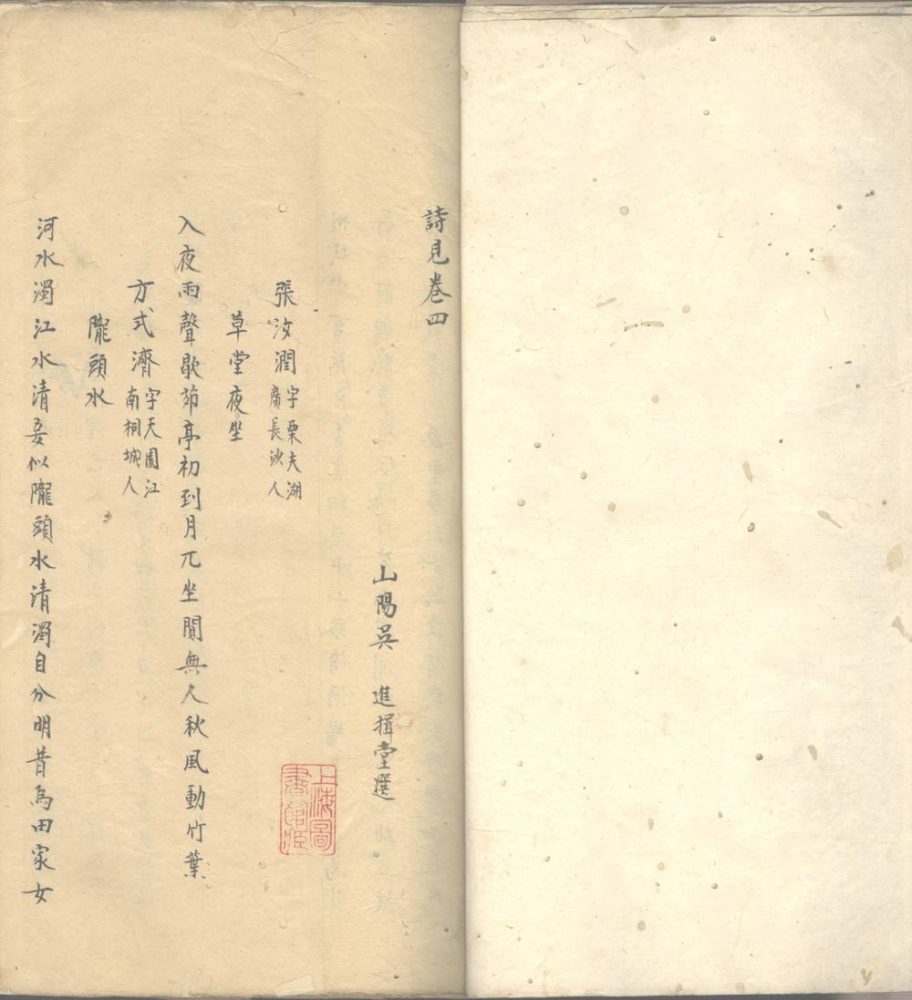 詩見卷四
山陽吳 進揖堂選
張汝潤字栗夫湖
廣長沙人
草堂夜坐
入夜雨聲歇茆亭初到月兀坐閴無人秋風動竹葉
方式濟字天園江
南桐城人
隴頭水
河水濁江水清妾似隴頭水清濁自分明昔為田家女
上海圖書館藏